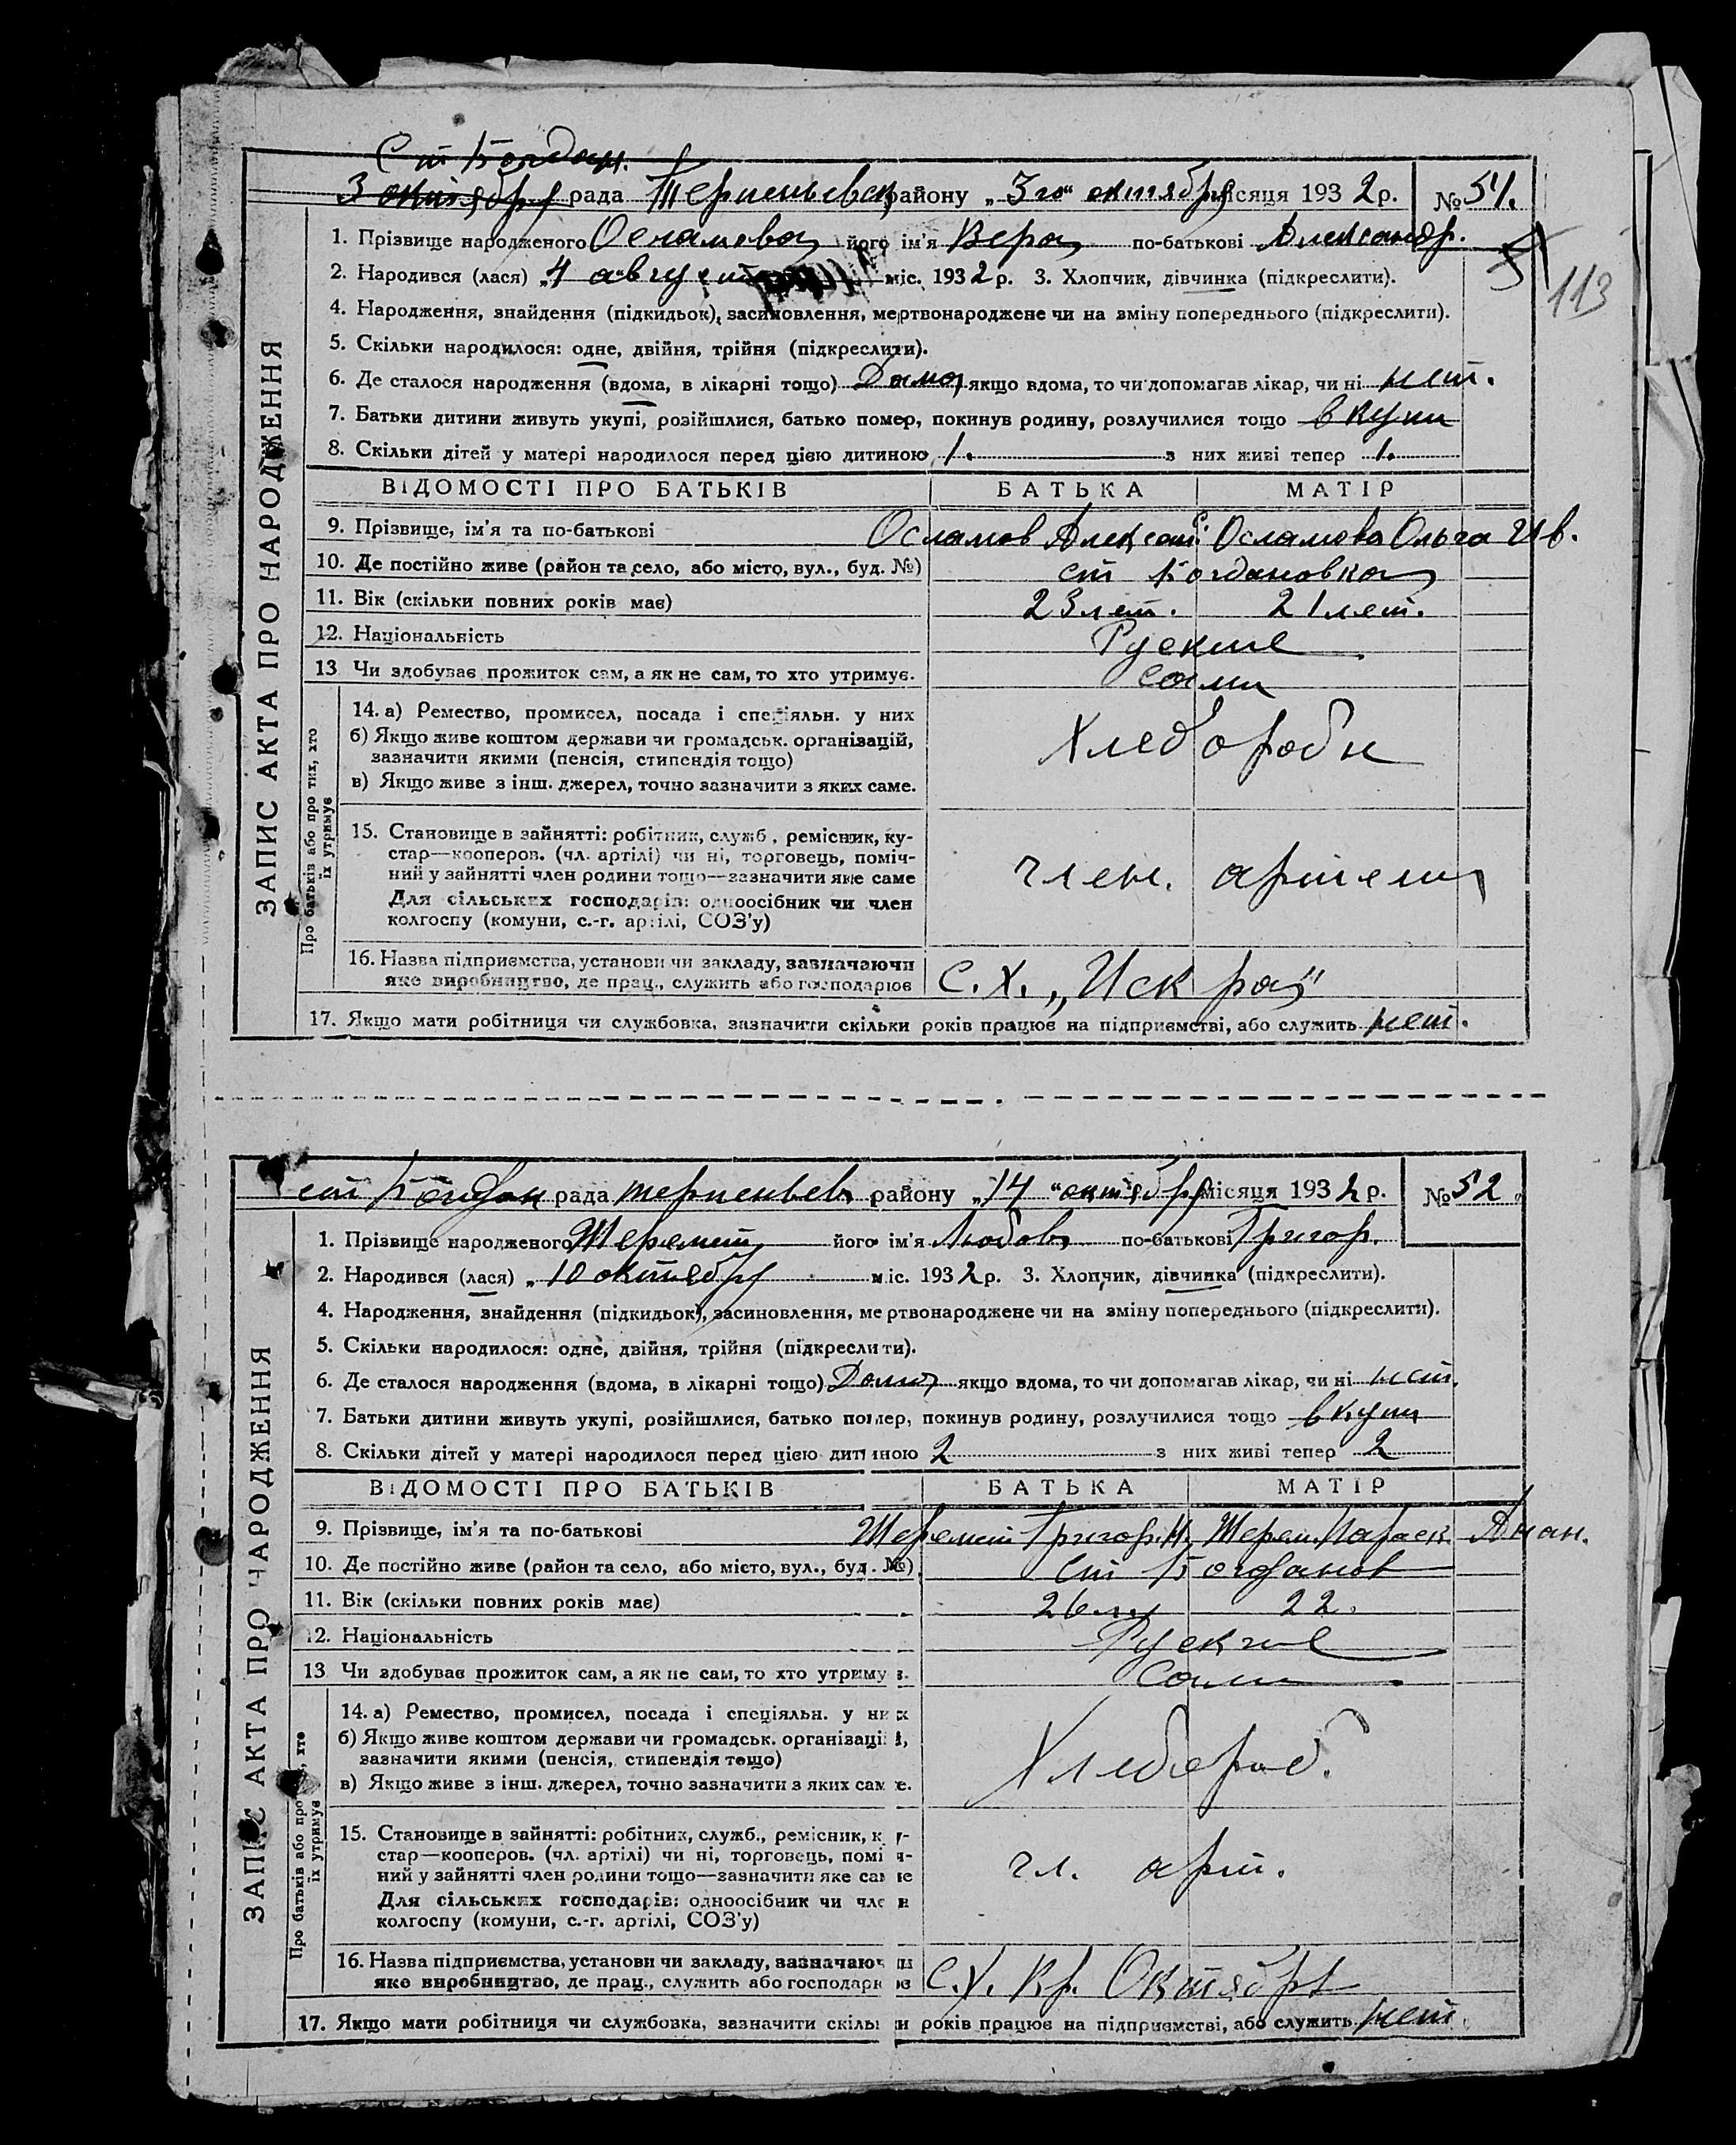 Ст Богдан.
3 октября рада Терпеньевск району „3го“ октября місяця 1932 р. № 51.
1. Прізвище народженого Осламова його ім'я Вера по-батькові Александр.
51
113
2. Народився (лася) „4 августа міс. 1932 р. 3. Хлопчик, дівчинка (підкреслити).
4. Народження, знайдення (підкидьок), засиновлення, мертвонароджене чи на зміну попереднього (підкреслити).
5. Скільки народилося: одне, двійня, трійня (підкреслити).
6. Де сталося народження (вдома, в лікарні тощо) Дома якщо вдома, то чи допомагав лікар, чи ні нет.
7. Батьки дитини живуть укупі, розійшлися, батько помер, покинув родину, розлучилися тощо вкупи
8. Скільки дітей у матері народилося перед цією дитиною 1. з них живі тепер 1.
ВІДОМОСТІ ПРО БАТЬКІВ БАТЬКА МАТІР
9. Прізвище, ім'я та по-батькові Осламов Александр Осламова Ольга Ив.
10. Де постійно живе (район та село, або місто, вул., буд. №) ст Богдановка
11. Вік (скільки повних років має) 23 лет. 21 лет.
12. Національність Руские
13 Чи здобуває прожиток сам, а як не сам, то хто утримує. Сами
14. а) Ремество, промисел, посада і спеціяльн. у них
б) Якщо живе коштом держави чи громадськ. організацій,
зазначити якими (пенсія, стипендія тощо)
Хлебороби
в) Якщо живе з інш. джерел, точно зазначити з яких саме.
15. Становище в зайнятті: робітник, служб., ремісник, ку-
стар—кооперов. (чл. артілі) чи ні, торговець, поміч-
ний у зайнятті член родини тощо—зазначити яке саме
член. артели
Для сільських господарів: одноосібник чи член
колгоспу (комуни, с.-г. артілі, СОЗ'у)
16. Назва підприємства, установи чи закладу, зазначаючи
яке виробництво, де прац., служить або господарює С. Х. „Искра“
17. Якщо мати робітниця чи службовка, зазначити скільки років працює на підприємстві, або служить нет.
ЗАПИС АКТА ПРО НАРОДЖЕННЯ
Про батьків або про тих, хто
їх утримує
ст Богдан рада терпеньев району „14“ октября місяця 1932 р. № 52
1. Прізвище народженого Шеремет його ім'я Любовь по-батькові Григор.
2. Народився (лася) „10 октября міс. 1932 р. 3. Хлопчик, дівчинка (підкреслити).
4. Народження, знайдення (підкидьок), засиновлення, мертвонароджене чи на зміну попереднього (підкреслити).
5. Скільки народилося: одне, двійня, трійня (підкреслити).
6. Де сталося народження (вдома, в лікарні тощо) Дома якщо вдома, то чи допомагав лікар, чи ні нет.
7. Батьки дитини живуть укупі, розійшлися, батько помер, покинув родину, розлучилися тощо вкупи
8. Скільки дітей у матері народилося перед цією дитиною 2 з них живі тепер 2
ВІДОМОСТІ ПРО БАТЬКІВ БАТЬКА МАТІР
9. Прізвище, ім'я та по-батькові Шеремет Григор. И. Шерем. Параск. Анан.
10. Де постійно живе (район та село, або місто, вул., буд. №) ст Богданов
11. Вік (скільки повних років має) 26 л. 22.
12. Національність Руские
13 Чи здобуває прожиток сам, а як не сам, то хто утримує. Сами
14. а) Ремество, промисел, посада і спеціяльн. у них
б) Якщо живе коштом держави чи громадськ. організацій,
зазначити якими (пенсія, стипендія тощо)
Хлебороб.
в) Якщо живе з інш. джерел, точно зазначити з яких саме.
15. Становище в зайнятті: робітник, служб., ремісник, ку-
стар—кооперов. (чл. артілі) чи ні, торговець, поміч-
ний у зайнятті член родини тощо—зазначити яке саме
чл. арт.
Для сільських господарів: одноосібник чи член
колгоспу (комуни, с.-г. артілі, СОЗ'у)
16. Назва підприємства, установи чи закладу, зазначаючи
яке виробництво, де прац., служить або господарює С. Х. Кр. Октябрь
17. Якщо мати робітниця чи службовка, зазначити скільки років працює на підприємстві, або служить нет.
ЗАПИС АКТА ПРО НАРОДЖЕННЯ
Про батьків або про тих, хто
їх утримує